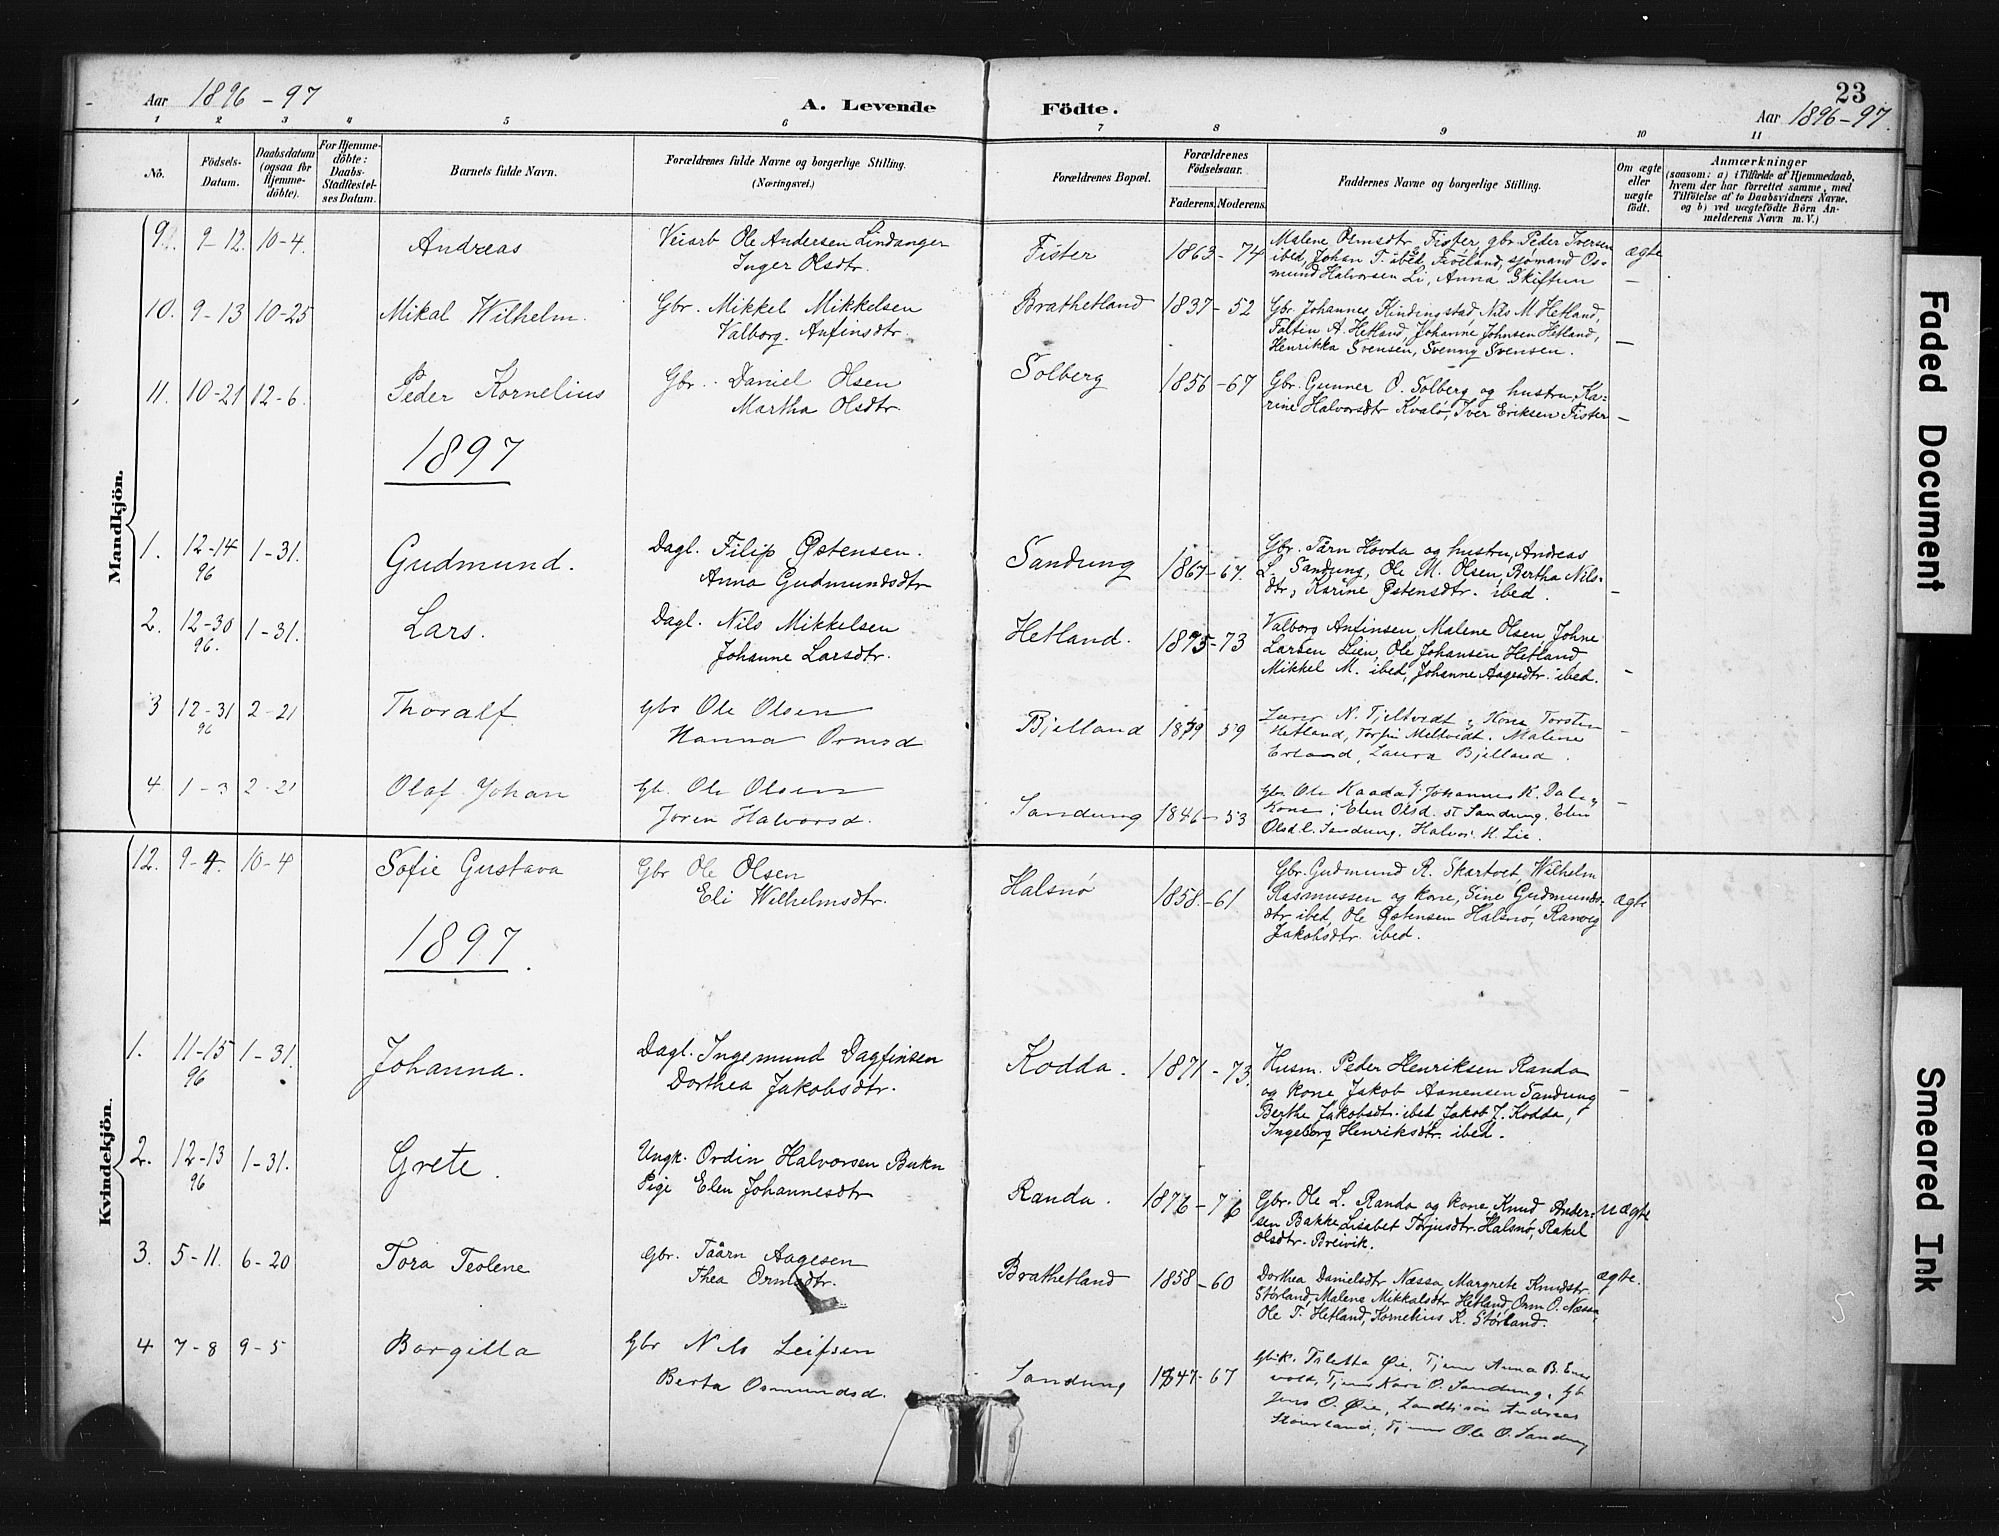 23
Aar 1896-97
A. Levende Födte.
Aar 1896-97.
1 2 3 4 5 6 7 8 9 10 11
No.
Födsels-
Datum.
Daabsdatum
(ogsaa for
Hjemme-
döbte).
For Hjemme-
döbte:
Daabs-
Stadfæstel-
ses Datum.
Barnets fulde Navn.
Forældrenes fulde Navne og borgerlige Stilling.
(Næringsvei.)
Forældrenes Bopæl.
Forældrenes
Födselsaar.
Faderens. Moderens.
Faddernes Navne og borgerlige Stilling.
Om ægte
eller
uægte
födt.
Anmærkninger
(saasom: a) i Tilfælde af Hjemmedaab,
hvem der har forrettet samme, med
Tilföielse af to Daabsvidners Navne,
og b) ved uægtefödte Börn An-
melderens Navn m. V.)
Mandkjön.
9. 9-12 10-4. Andreas
Ole Andersen Lindanger
Inger Olsdtr.
Fister 1863-74
Malene Ormsdtr. Fister, gbr. Peder Iversen
ibed, Johan T. ibed, sjömand Os-
mund Halvorsen Li, Anna Skiftun
ægte
—
10. 9-13 10-25 Mikal Wilhelm.
Gbr. Mikkel Mikkelsen
Valborg Anfinsdtr.
Brathetland 1837-52
Gbr. Johannes Kindingstad Nils M Hetland,
Faltin A. Hetland, Johanne Johnsen Hetland,
Henrikka Svensen, Svenny Svensen.
—
11. 10-21 12-6. Peder Kornelius
Gbr. Daniel Olsen
Martha Olsdtr.
Solberg 1856-67
Gbr. Gunner O. Solberg og hustru, Ka-
rine Halvorsdtr Kvalö, Iver Eriksen Fister
—
1897
1. 12-14
96
1-31. Gudmund.
Dagl. Filip Østensen.
Anna Gudmundsdtr
Sandung 1867-67.
Gbr. Tårn Hovda og hustru, Andreas
L. Sandung, Ole M. Olsen, Bertha Nils-
dtr, Karine Østensdtr. ibed.
—
2. 12-30
96.
1-31. Lars.
Dagl. Nils Mikkelsen
Johanne Larsdtr.
Hetland. 1875-73
Valborg Anfinsen, Malene Olsen, Johne
Larsen Lien, Ole Johansen Hetland,
Mikkel M. ibed, Johanne Aagesdtr. ibed.
—
3 12-31
96
2-21 Thoralf
Gbr Ole Olsen
Hanna Ormsd
Bjelland 59
N. Tjeltvedt, Kone Torsten
Hetland, Torfin Meltvedt. Malene
Erland, Laura Bjelland.
—
4. 1-3 2-21 Olaf Johan
Gb. Ole Olsen
Joren Halvorsd.
Sandung 1846-53
Gbr. Ole Kaada, Johannes K. Dale,
Kone, Elen Olsd. st Sandung, Elen
Olsd. l. Sandung, Halvor H. Lie.
—
Kvindekjön.
12. 9-4. 10-4 Sofie Gustava
Gbr Ole Olsen
Eli Wilhelmsdtr.
Halsnø 1858-61.
Gbr. Gudmund R. Skartvet, Wilhelm
Rasmussen og kone, Sine Gudmunds-
dtr ibed, Ole Østensen Halsnø, Ranveg
Jakobsdtr. ibed.
ægte
1897.
1. 11-15
96
1-31. Johanna.
Dagl. Ingemund Dagfinsen
Dorthea Jakobsdtr.
Kodda. 1871-73.
Husm. Peder Henriksen Randa
og kone, Jakob Aanensen Sandung
Berthe Jakobsdtr. ibed Jakob J. Kodda,
Ingeborg Henriksdtr. ibed.
—
2. 12-13
96
1-31. Grete.
Ungk. Ordin Halvorsen Bukn
Pige Elen Johannesdtr
Randa. 1876-76
Gbr. Ole L. Randa og kone, Knud Ander-
sen Bakke, Lisabet Torjusdtr. Halsnø, Rakel
Olsdtr. Breivik.
uægte
3. 5-11. 6-20 Tora Teolene
Gbr. Taårn Aagesen
Thea Ormsdtr.
Brathetland 1858-60
Dorthea Danielsdtr Næssa, Margrete Knudstr.
Størland, Malene Mikkalsdtr Hetland, Orm O. Næssa
Ole T. Hetland, Kornelius K. Størland.
ægte.
4 7-8 9-5 Borgilla
Gbr Nils Leifsen
Berta Osmundsd.
Sandung 1847-67
Øie, Tjener Anna B.
Tjener Kari O. Sandung, Gb
Jens O. Øie, Andreas
Stourland, Tjener Ole O. Sandung
5
Faded Document
Smeared Ink